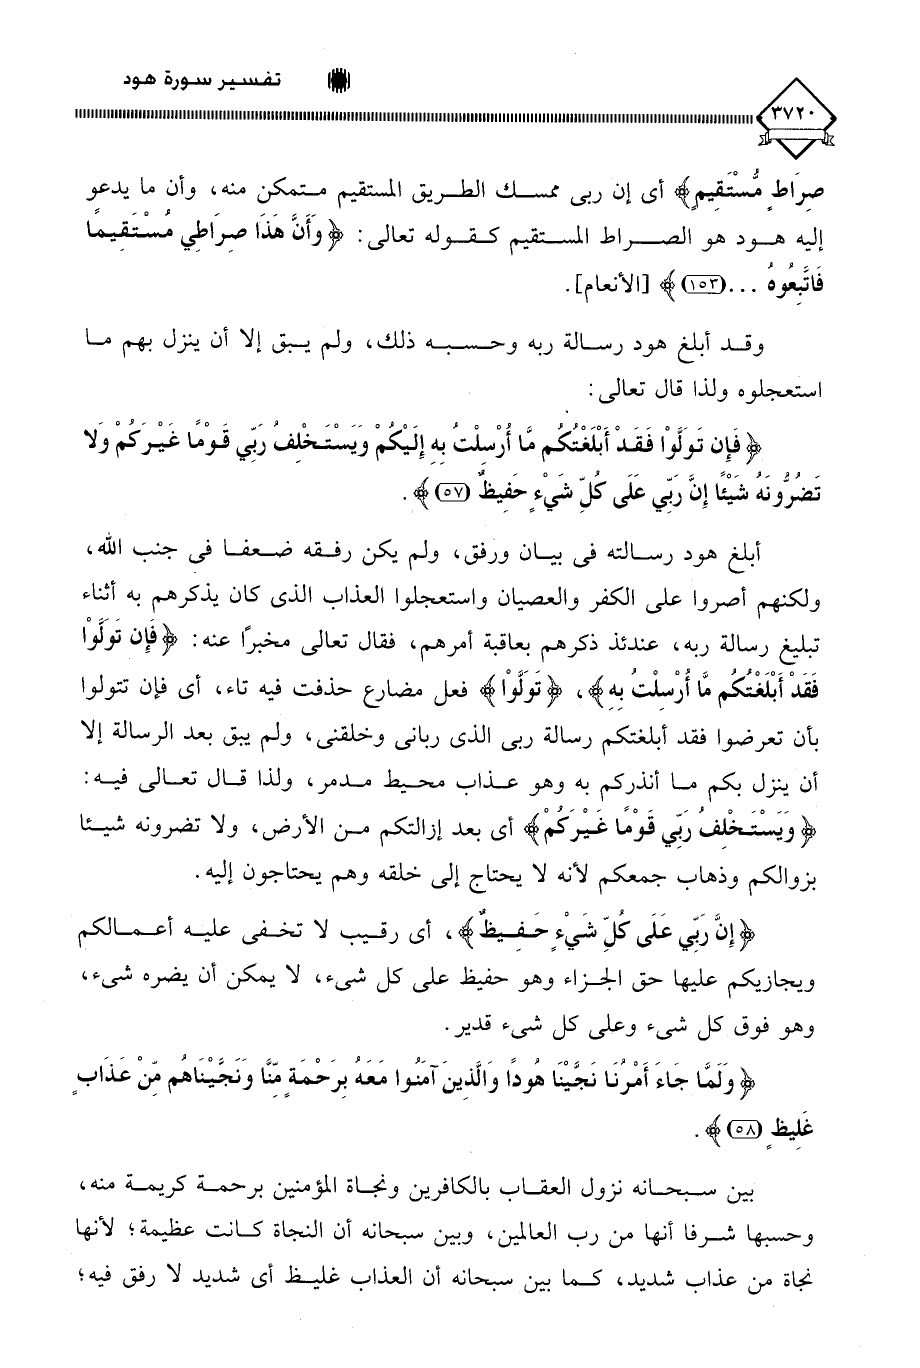 تفسير سورة هود
٣٧٢٠
صِرَاطٍ مُّسْتَقِيمٍ﴾ أى إن ربى ممسك الطريق المستقيم متمكن منه، وأن ما يدعو
إليه هود هو الصراط المستقيم كقوله تعالى: ﴿وَأَنَّ هَذَا صِرَاطِي مُسْتَقِيمًا
فَاتَّبِعُوهُ ...(١٥٣)﴾ [الأنعام].
وقد أبلغ هود رسالة ربه وحسبه ذلك، ولم يبق إلا أن ينزل بهم ما
استعجلوه ولذا قال تعالى:
﴿فَإِن تَوَلَّوْا فَقَدْ أَبْلَغْتُكُم مَّا أُرْسِلْتُ بِهِ إِلَيْكُمْ وَيَسْتَخْلِفُ رَبِّي قَوْمًا غَيْرَكُمْ وَلا
تَضُرُّونَهُ شَيْئًا إِنَّ رَبِّي عَلَى كُلِّ شَيْءٍ حَفِيظٌ (٥٧)﴾.
أبلغ هود رسالته فى بيان ورفق، ولم يكن رفقه ضعفا فى جنب الله،
ولكنهم أصروا على الكفر والعصيان واستعجلوا العذاب الذى كان يذكرهم به أثناء
تبليغ رسالة ربه، عندئذ ذكرهم بعاقبة أمرهم، فقال تعالى مخبرًا عنه: ﴿فَإِن تَوَلَّوْا
فَقَدْ أَبْلَغْتُكُم مَّا أُرْسِلْتُ بِهِ﴾، ﴿تَوَلَّوْا﴾ فعل مضارع حذفت فيه تاء، أى فإن تتولوا
بأن تعرضوا فقد أبلغتكم رسالة ربى الذى ربانى وخلقنى، ولم يبق بعد الرسالة إلا
أن ينزل بكم ما أنذركم به وهو عذاب محيط مدمر، ولذا قال تعالى فيه:
﴿وَيَسْتَخْلِفُ رَبِّي قَوْمًا غَيْرَكُمْ﴾ أى بعد إزالتكم من الأرض، ولا تضرونه شيئا
بزوالكم وذهاب جمعكم لأنه لا يحتاج إلى خلقه وهم يحتاجون إليه.
﴿إِنَّ رَبِّي عَلَى كُلِّ شَيْءٍ حَفِيظٌ﴾، أى رقيب لا تخفى عليه أعمالكم
ويجازيكم عليها حق الجزاء وهو حفيظ على كل شىء، لا يمكن أن يضره شىء،
وهو فوق كل شىء وعلى كل شىء قدير.
﴿وَلَمَّا جَاءَ أَمْرُنَا نَجَّيْنَا هُودًا وَالَّذِينَ آمَنُوا مَعَهُ بِرَحْمَةٍ مِّنَّا وَنَجَّيْنَاهُم مِّنْ عَذَابٍ
غَلِيظٍ (٥٨)﴾.
بين سبحانه نزول العقاب بالكافرين ونجاة المؤمنين برحمة كريمة منه،
وحسبها شرفا أنها من رب العالمين، وبين سبحانه أن النجاة كانت عظيمة؛ لأنها
نجاة من عذاب شديد، كما بين سبحانه أن العذاب غليظ أى شديد لا رفق فيه؛